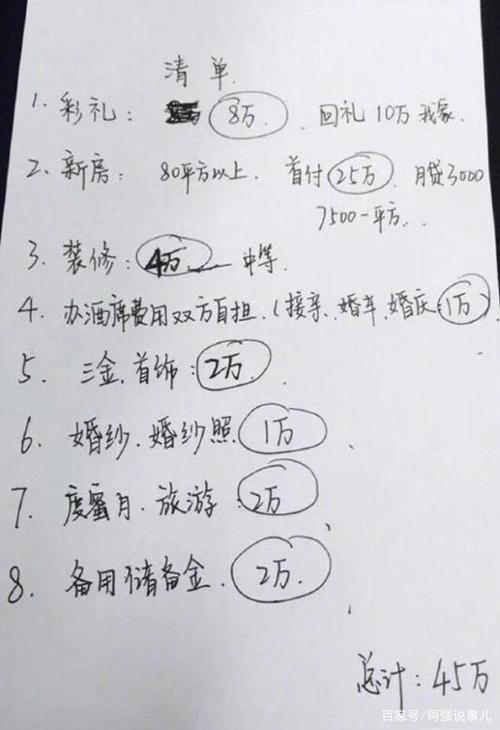 清单
1. 彩礼: 8万. 回礼10万我家.
2. 新房: 80平方以上. 首付25万. 月贷3000
7500一平方..
3. 装修: 4万 中等.
4. 办酒席费用双方自担.(接亲、婚车、婚庆:1万)
5. 三金.首饰:2万.
6. 婚纱.婚纱照 1万、
7. 度蜜月.旅游:2万、
8. 备用储备金. 2万.、
总计:45万
百家号/阿强说事儿